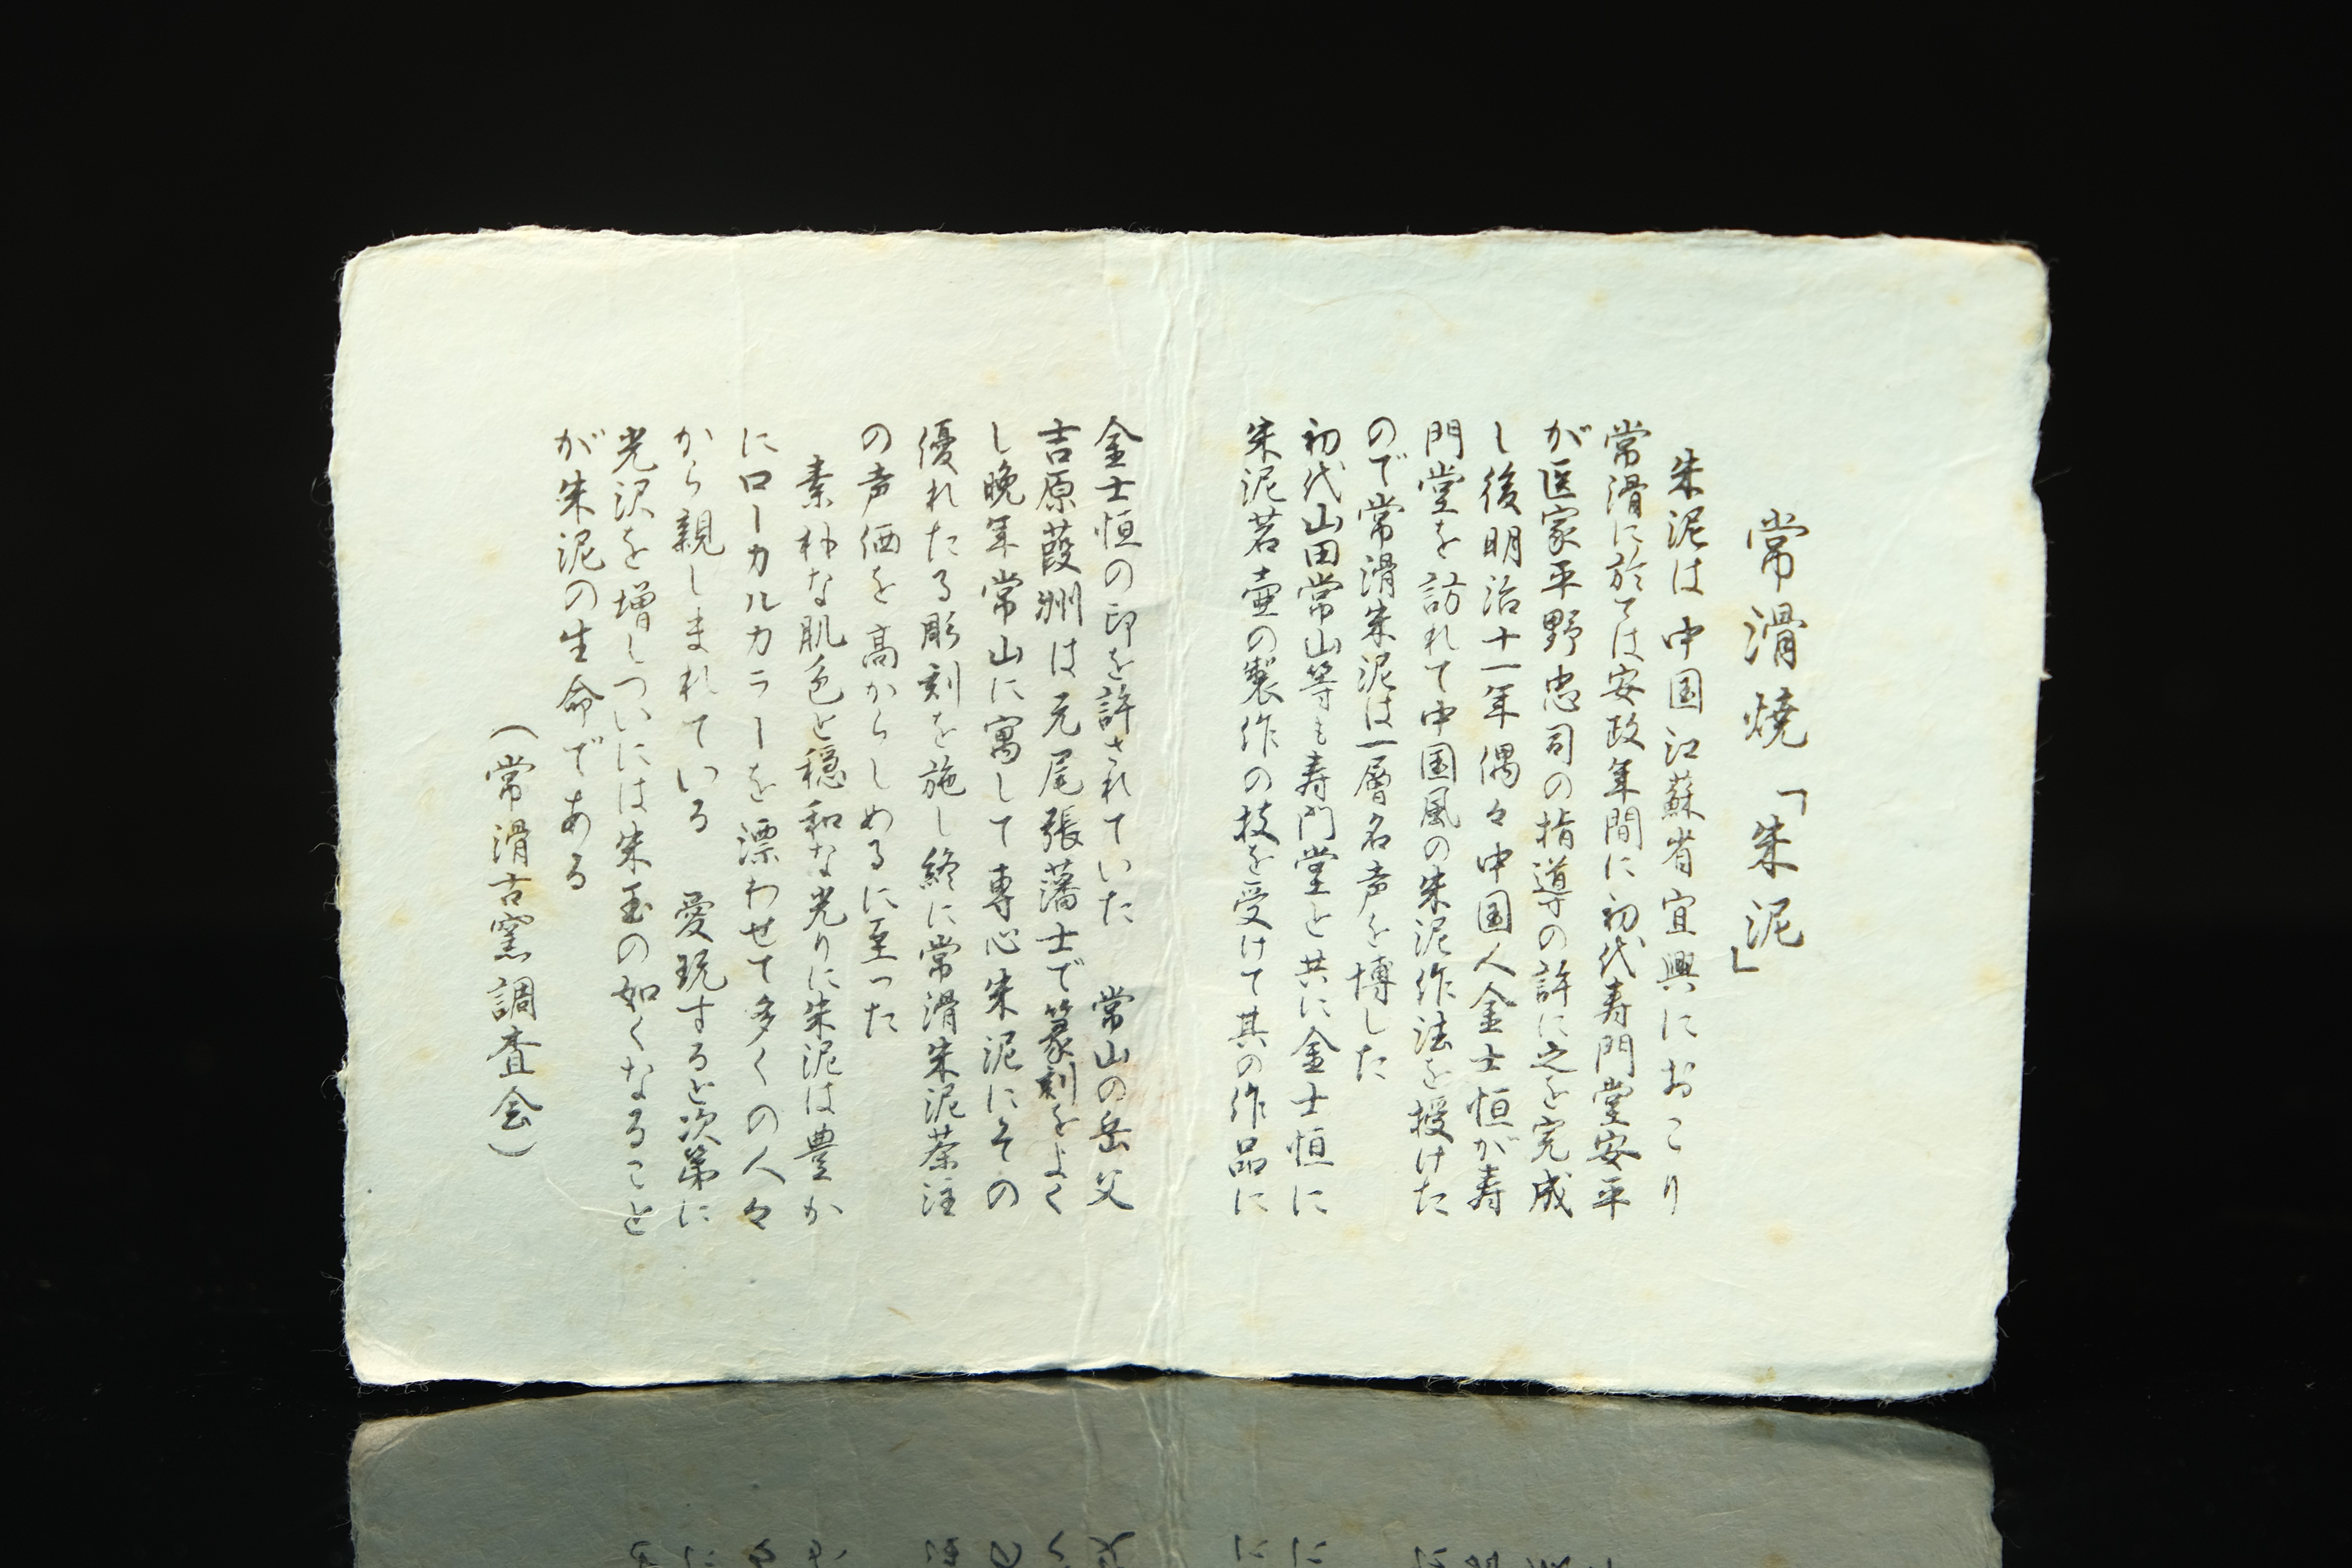 常滑焼「朱泥」
朱泥は中国江蘇省宜興におこり
常滑に於ては安政年間に初代寿門堂安平
が医家平野忠司の指導の許に之を完成
し後明治十一年偶々中国人金士恒が寿
門堂を訪れて中国風の朱泥作法を授けた
ので常滑朱泥は一層名声を博した
初代山田常山等も寿門堂と共に金士恒に
朱泥茗壷の製作の技を受けて其の作品に
金士恒の印を許されていた 常山の岳父
吉原葭洲は元尾張藩士で篆刻をよく
し晩年常山に寓して専心朱泥にその
優れたる彫刻を施し終に常滑朱泥茶注
の声価を高からしめるに至った
素朴な肌色と穏和な光りに朱泥は豊か
にローカルカラーを漂わせて多くの人々
から親しまれている 愛玩すると次第に
光沢を増しついには朱玉の如くなること
が朱泥の生命である
(常滑古窯調査会)